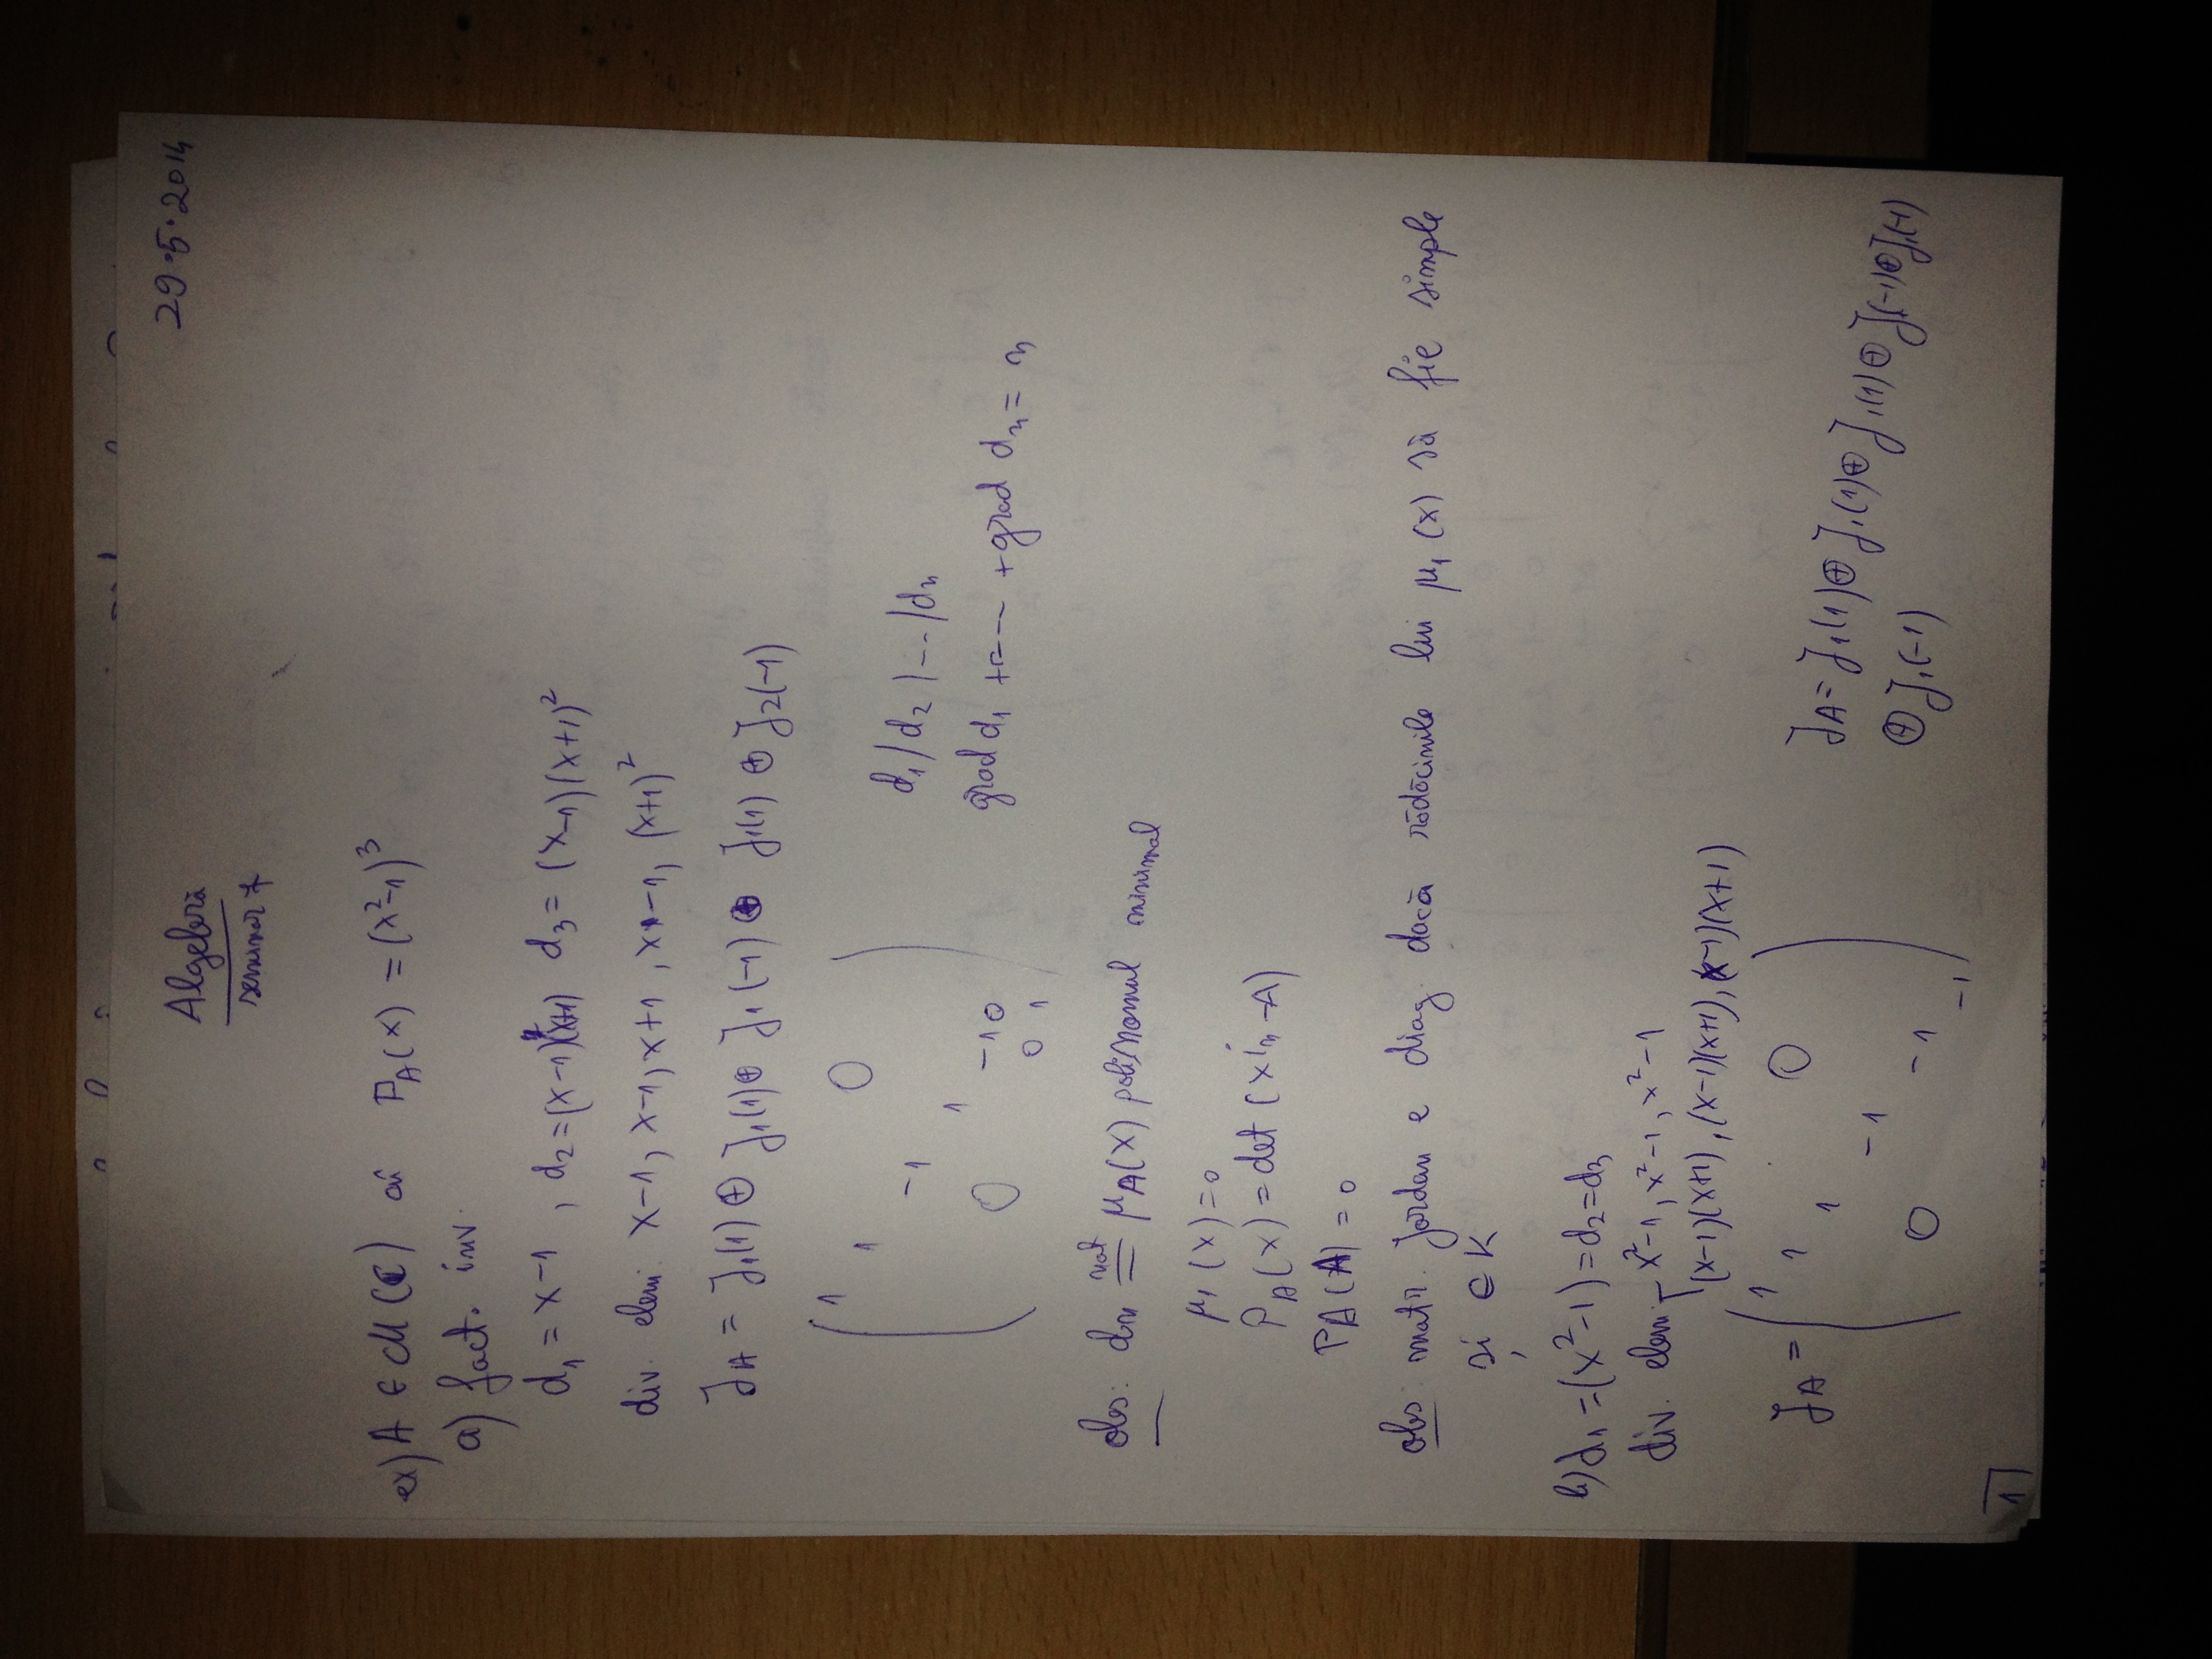 29.5.2014
Algebră
seminar 7
ex) A ∈ M(C) aî P_A(x) = (x²-1)³
a) fact. inv.
d₁ = x-1, d₂ = (x-1)(x+1) d₃ = (x-1)(x+1)²
div. elem: x-1, x-1, x+1, x-1, (x+1)²
J_A = J₁(1) ⊕ J₁(1) ⊕ J₁(-1) ⊕ J₁(1) ⊕ J₂(-1)
1 0
1
-1
1
0 -1 0
0 1
d₁/d₂/--/dₙ
grad d₁ + --- + grad dₙ = n
obs: dₙ not= μ_A(x) polinomul minimal
μ₁(x) = 0
P_A(x) = det(xiₙ-A)
P_A(A) = 0
obs matr. Jordan e diag. dacă rădăcinile lui μ₁(x) să fie simple
și ∈ K
b) d₁ = (x²-1) = d₂ = d₃
div. elem: x²-1, x²-1, x²-1
(x-1)(x+1), (x-1)(x+1), (x-1)(x+1)
J_A =
1
1 0
1
-1
0 -1
-1
J_A = J₁(1) ⊕ J₁(1) ⊕ J₁(1) ⊕ J₁(-1) ⊕ J₁(-1)
⊕ J₁(-1)
1